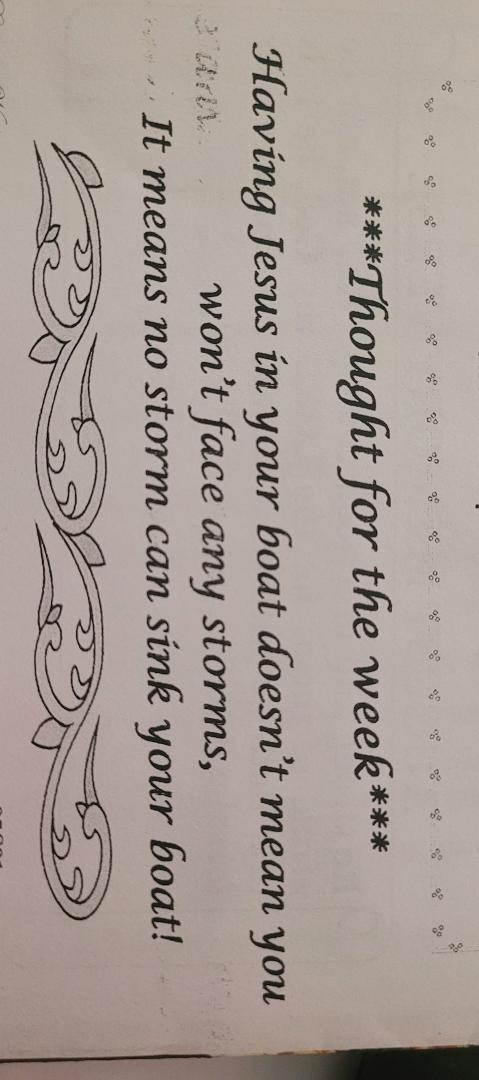 ***Thought for the week***
Having Jesus in your boat doesn't mean you
won't face any storms,
It means no storm can sink your boat!